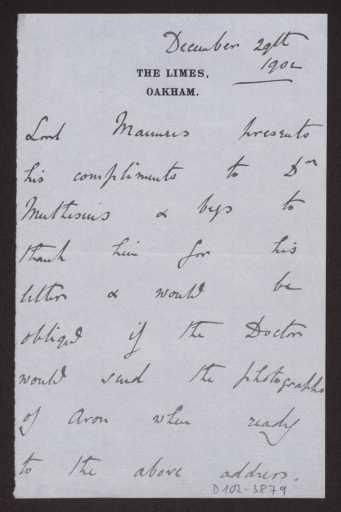 December 29th
1902
THE LIMES,
OAKHAM.
Lord Manners presents
his compliments to Dr
Muthesius & begs to
thank him for his
letter & would be
obliged if the Doctor
would send the photographs
of Avon when ready
to the above address.
D102-3879